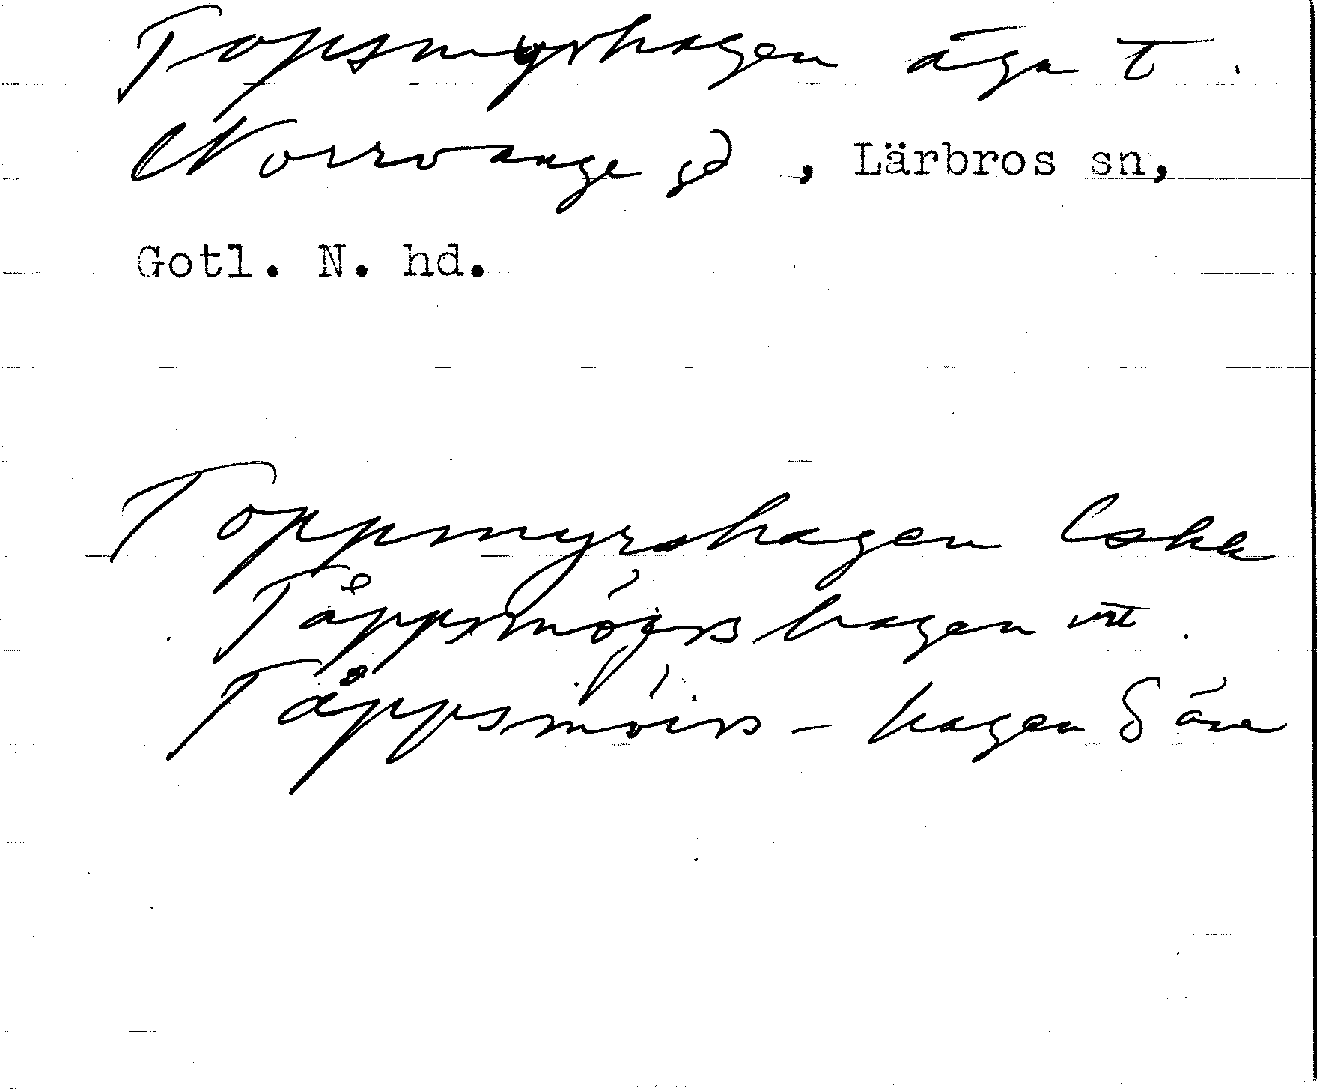 Topsmyrhagen äga t.
Norrvange gd, Lärbros sn,
Gotl. N. hd.
Toppmyrshagen
Tåppsmöjrs hagen
Tåppsmöirs - hagen